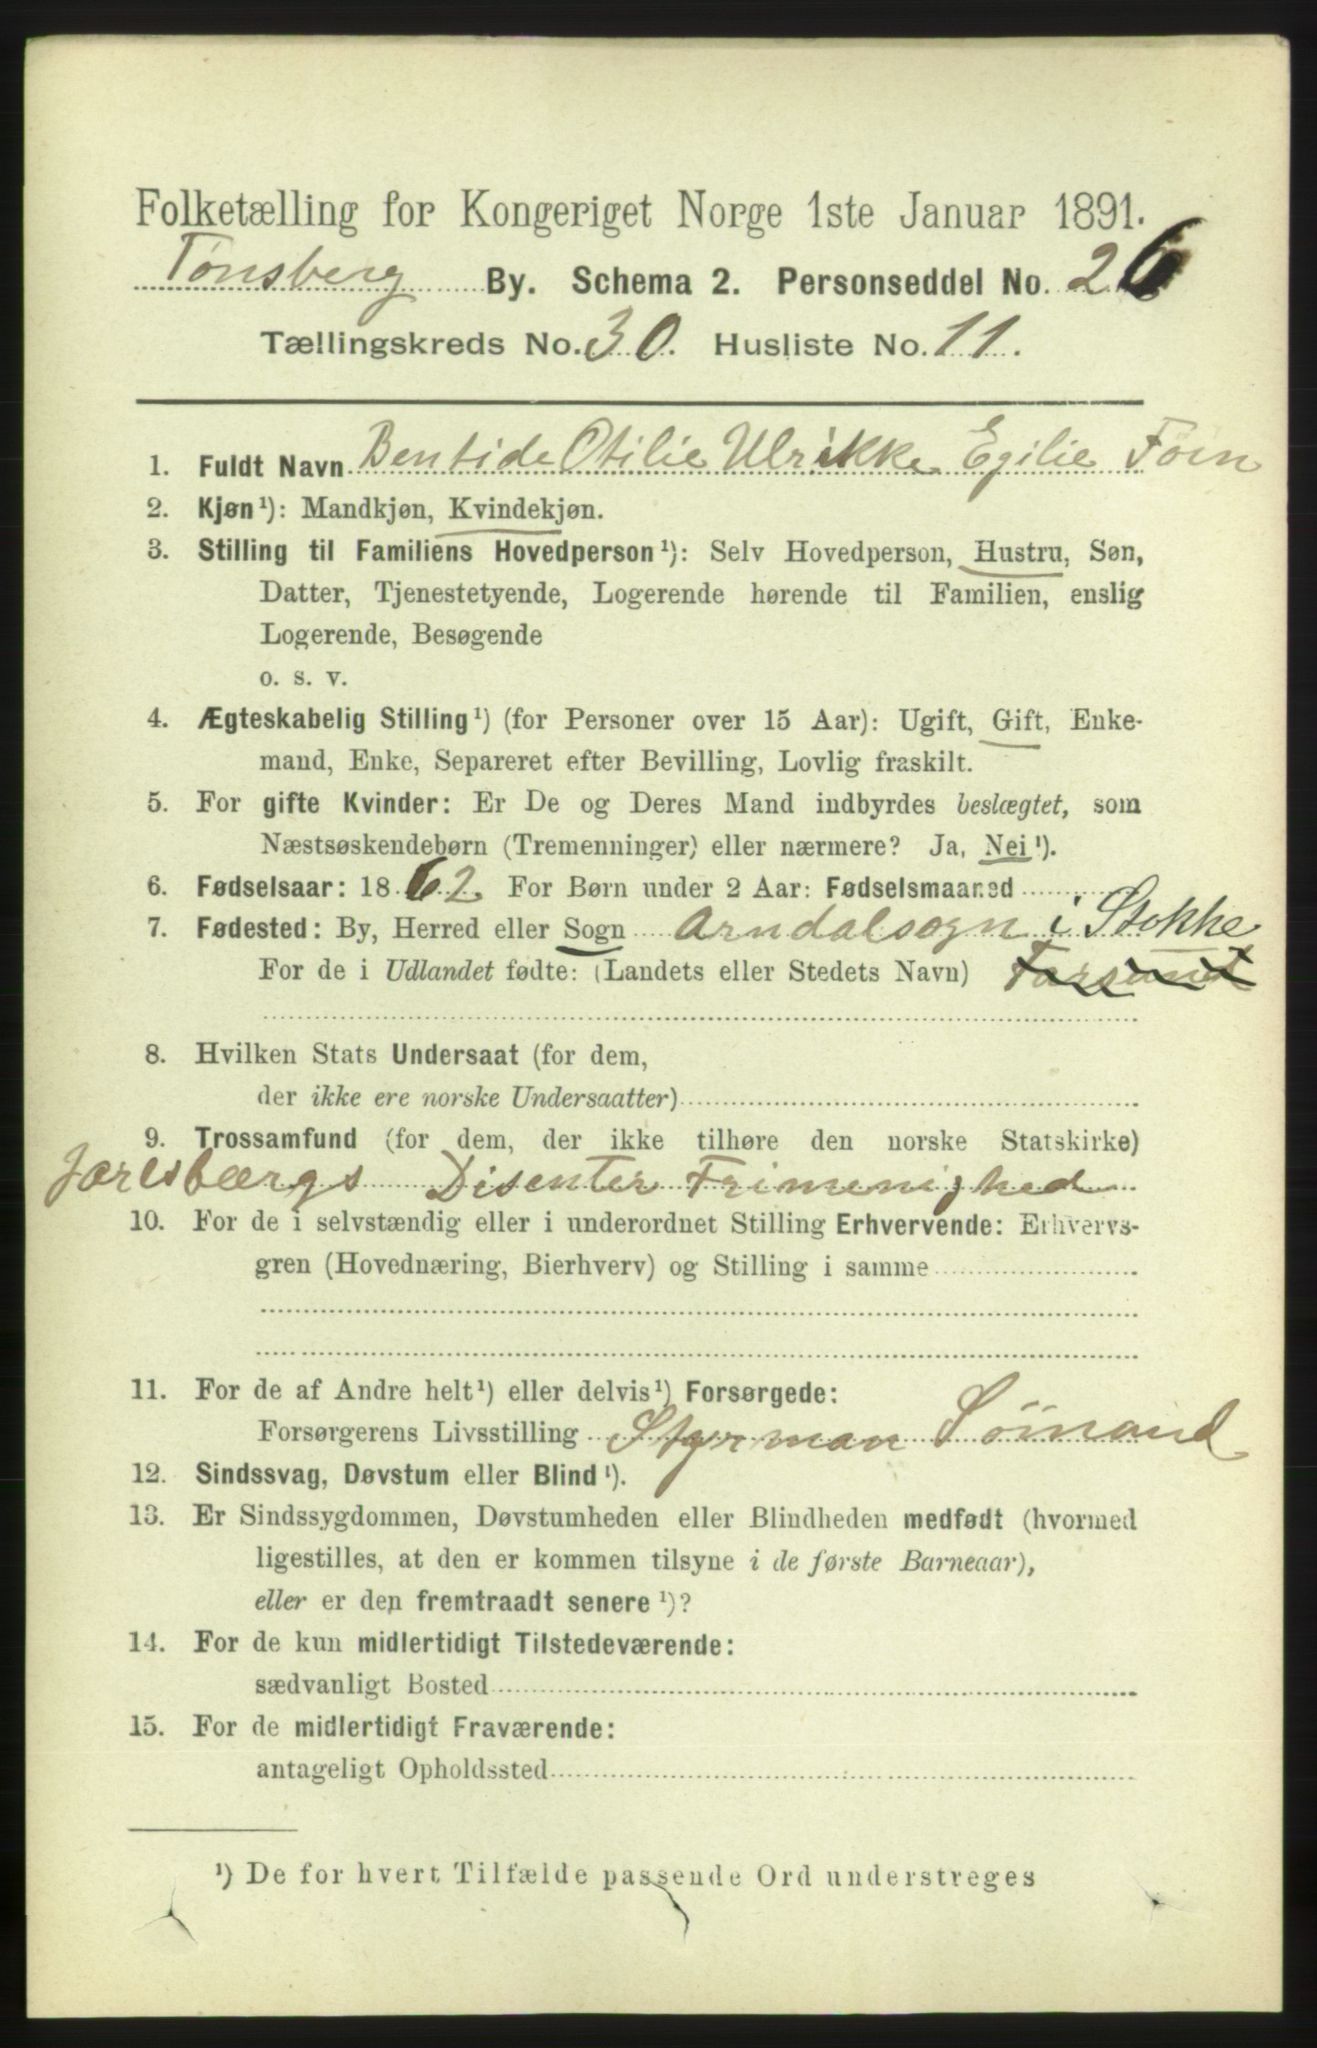 Folketælling for Kongeriget Norge 1ste Januar 1891.
Tønsberg By. Schema 2. Personseddel No. 26
Tællingskreds No. 30. Husliste No. 11.
1. Fuldt Navn Bentide Otilie Ulrikke Egilie Føin
2. Kjøn ¹): Mandkjøn, Kvindekjøn.
3. Stilling til Familiens Hovedperson ¹): Selv Hovedperson, Hustru, Søn,
Datter, Tjenestetyende, Logerende hørende til Familien, enslig
Logerende, Besøgende
o. s. v.
4. Ægteskabelig Stilling ¹) (for Personer over 15 Aar): Ugift, Gift, Enke-
mand, Enke, Separeret efter Bevilling, Lovlig fraskilt.
5. For gifte Kvinder: Er De og Deres Mand indbyrdes beslægtet, som
Næstsøskendebørn (Tremenninger) eller nærmere? Ja, Nei ¹).
6. Fødselsaar: 1862. For Børn under 2 Aar: Fødselsmaaned
7. Fødested: By, Herred eller Sogn Arndalsogn i Stokke
For de i Udlandet fødte: (Landets eller Stedets Navn) Farsund
8. Hvilken Stats Undersaat (for dem,
der ikke ere norske Undersaatter)
9. Trossamfund (for dem, der ikke tilhøre den norske Statskirke)
Jarlsbærgs Disenter Frimenighed
10. For de i selvstændig eller i underordnet Stilling Erhvervende: Erhvervs-
gren (Hovednæring, Bierhverv) og Stilling i samme
11. For de af Andre helt ¹) eller delvis ¹) Forsørgede:
Forsørgerens Livsstilling Styrman Søinand
12. Sindssvag, Døvstum eller Blind ¹).
13. Er Sindssygdommen, Døvstumheden eller Blindheden medfødt (hvormed
ligestilles, at den er kommen tilsyne i de første Barneaar),
eller er den fremtraadt senere ¹)?
14. For de kun midlertidigt Tilstedeværende:
sædvanligt Bosted
15. For de midlertidigt Fraværende:
antageligt Opholdssted
¹) De for hvert Tilfælde passende Ord understreges